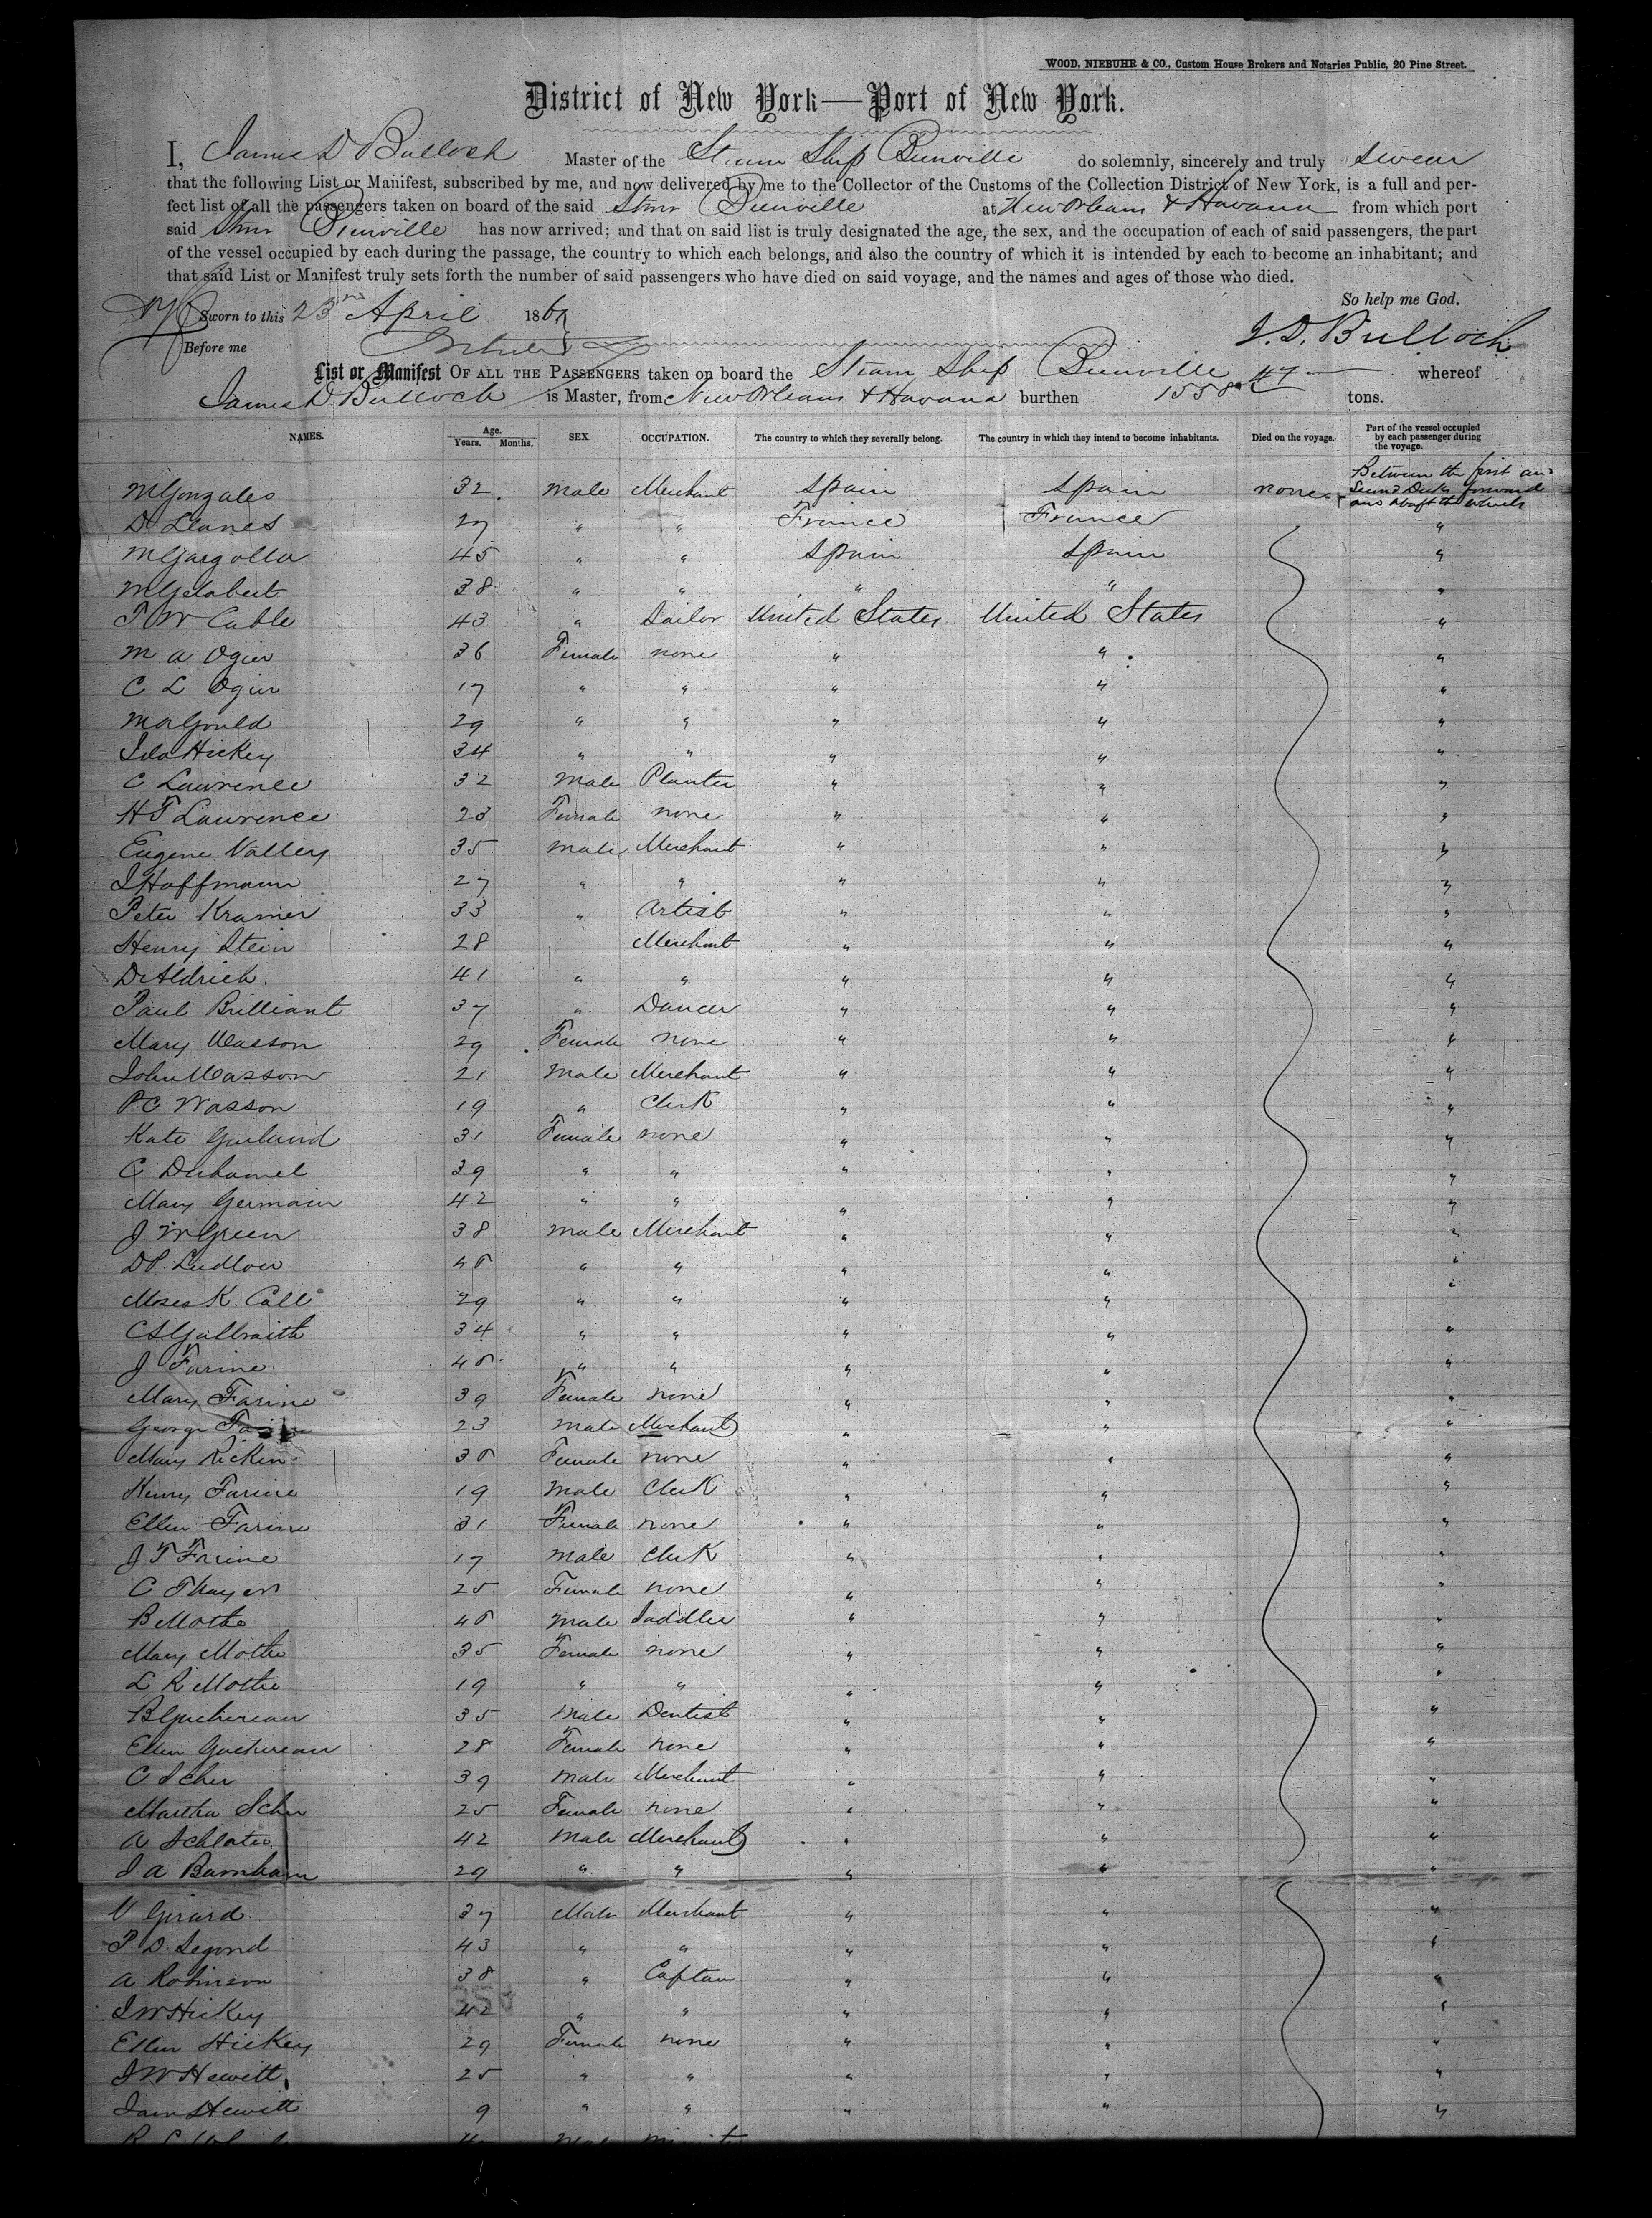 WOOD, NIEBUHR & CO., Custom House Brokers and Notaries Public, 20 Pine Street.
District of New York—Port of New York.
I, James D Bulloch Master of the Steam Ship Bienville do solemnly, sincerely and truly swear
that the following List or Manifest, subscribed by me, and now delivered by me to the Collector of the Customs of the Collection District of New York, is a full and per-
fect list of all the passengers taken on board of the said Stmr Bienville at New Orleans & Havana from which port
said Stmr Bienville has now arrived; and that on said list is truly designated the age, the sex, and the occupation of each of said passengers, the part
of the vessel occupied by each during the passage, the country to which each belongs, and also the country of which it is intended by each to become an inhabitant; and
that said List or Manifest truly sets forth the number of said passengers who have died on said voyage, and the names and ages of those who died.
So help me God.
Sworn to this 23rd April 186
J. D. Bulloch
Before me
List or Manifest OF ALL THE PASSENGERS taken on board the Steam Ship Bienville whereof
James D Bulloch is Master, from New Orleans & Havana burthen 1558 tons.
NAMES. Age. Years. Months. SEX. OCCUPATION. The country to which they severally belong. The country in which they intend to become inhabitants. Died on the voyage. Part of the vessel occupied by each passenger during the voyage.
M Gonzales 32 Male Merchant Spain Spain none Between the first and Second Decks forward and abaft the wheels
D Llanes 27 " " France France "
M Gargolla 45 " " Spain Spain "
M Gelabert 38 " " " " "
T W Cable 43 " Sailor United States United States "
M A Ogier 36 Female none " " "
C L Ogier 17 " " " " "
M A Gould 29 " " " " "
Ida Hickey 34 " " " " "
C Lawrence 32 Male Planter " " "
H T Lawrence 23 Female none " " "
Eugene Vallery 35 Male Merchant " " "
J Hoffmann 27 " " " " "
Peter Kramer 33 " Artist " " "
Henry Stein 28 Merchant " " "
D Aldrich 41 " " " " "
Paul Brilliant 37 " Dancer " " "
Mary Wasson 29 Female none " " "
John Wasson 21 Male Merchant " " "
P C Wasson 19 " Clerk " " "
Kate Garland 31 Female none " " "
C Duhamel 39 " " " " "
Mary Germain 42 " " " " "
J W Green 38 Male Merchant " " "
D P Ludlow 45 " " " " "
Moses K Call 29 " " " " "
C S Galbraith 34 " " " " "
J Farine 45 " " " " "
Mary Farine 39 Female none " " "
George Farine 23 Male Merchant " " "
Mary Ricken 35 Female none " " "
Henry Farine 19 Male Clerk " " "
Ellen Farine 31 Female none " " "
J T Farine 17 Male Clerk " " "
C Thayer 25 Female none " " "
B Mothe 45 Male Saddler " " "
Mary Mothe 35 Female none " " "
L R Mothe 19 " " " " "
B Guchereau 35 Male Dentist " " "
Ellen Guchereau 28 Female none " " "
C Scher 39 Male Merchant " " "
Martha Scher 25 Female none " " "
A Schlater 42 Male Merchant " " "
J A Barnham 29 " " " " "
V Girard 37 Male Merchant " " "
P D Segond 43 " " " " "
A Robinson 38 " Captain " " "
J W Hickey 42 " " " " "
Ellen Hickey 29 Female none " " "
J W Hewitt 25 " " " " "
Jam Hewitt 9 " " " " "